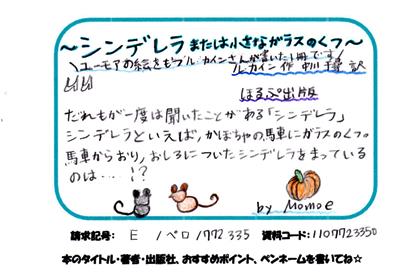 ～シンデレラ または小さなガラスのくつ～
\ユーモアの絵をもつル・カインさんが書いた1冊です/
ル・カイン 作 中川 訳
ほるぷ出版
だれもが一度は聞いたことがある「シンデレラ」
シンデレラといえば、かぼちゃの馬車にガラスのくつ。
馬車からおり、おしろについたシンデレラをまっている
のは…!?
by Momoe
請求記号: E /ペロ/772335 資料コード:1107723350
本のタイトル・著者・出版社、おすすめポイント、ペンネームを書いてね☆